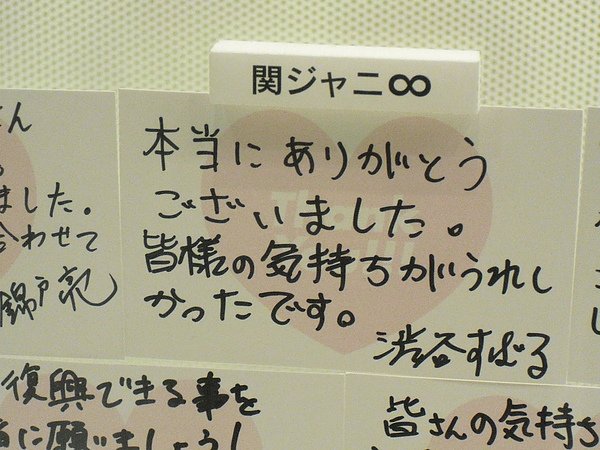 関ジャニ∞
本当にありがとう
ございました。
皆様の気持ちがうれし
かったです。
渋谷すばる
ました。
合わせて
錦戸亮
復興できる事を
願いましょう!
皆さんの気持ち